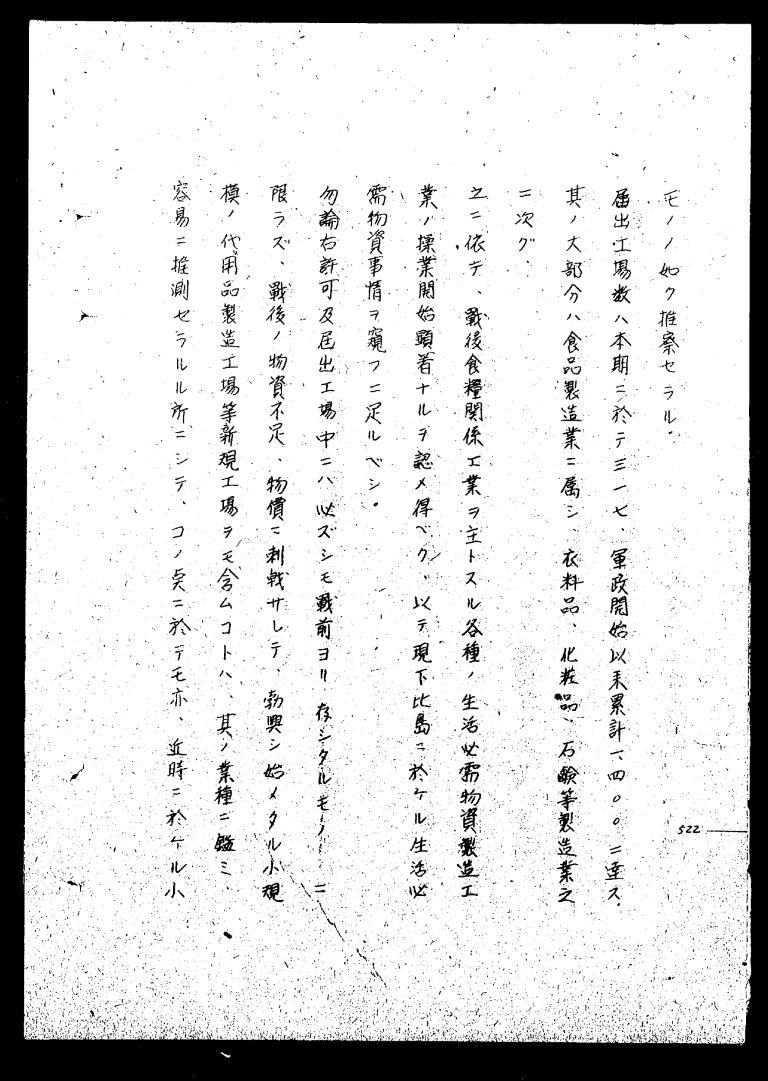 モノノ如ク推察セラル。
届出工場数ハ本期ニ於テ三一七、軍政開始以来累計一、四〇〇ニ達ス。
其ノ大部分ハ食品製造業ニ属シ、衣料品、化粧品、石鹸等製造業之
ニ次グ。
之ニ依テ、戦後食糧関係工業ヲ主トスル各種ノ生活必需物資製造工
業ノ操業開始顕著ナルヲ認メ得ベク、以テ現下比島ニ於ケル生活必
需物資事情ヲ窺フニ足ルベシ。
勿論右許可及届出工場中ニハ必ズシモ戦前ヨリ存シタルモノノミニ
限ラズ、戦後ノ物資不足、物價ニ刺戟サレテ、勃興シ始メタル小規
模ノ代用品製造工場等新規工場ヲモ含ムコトハ、其ノ業種ニ鑑ミ、
容易ニ推測セラルル所ニシテ、コノ点ニ於テモ亦、近時ニ於ケル小
522